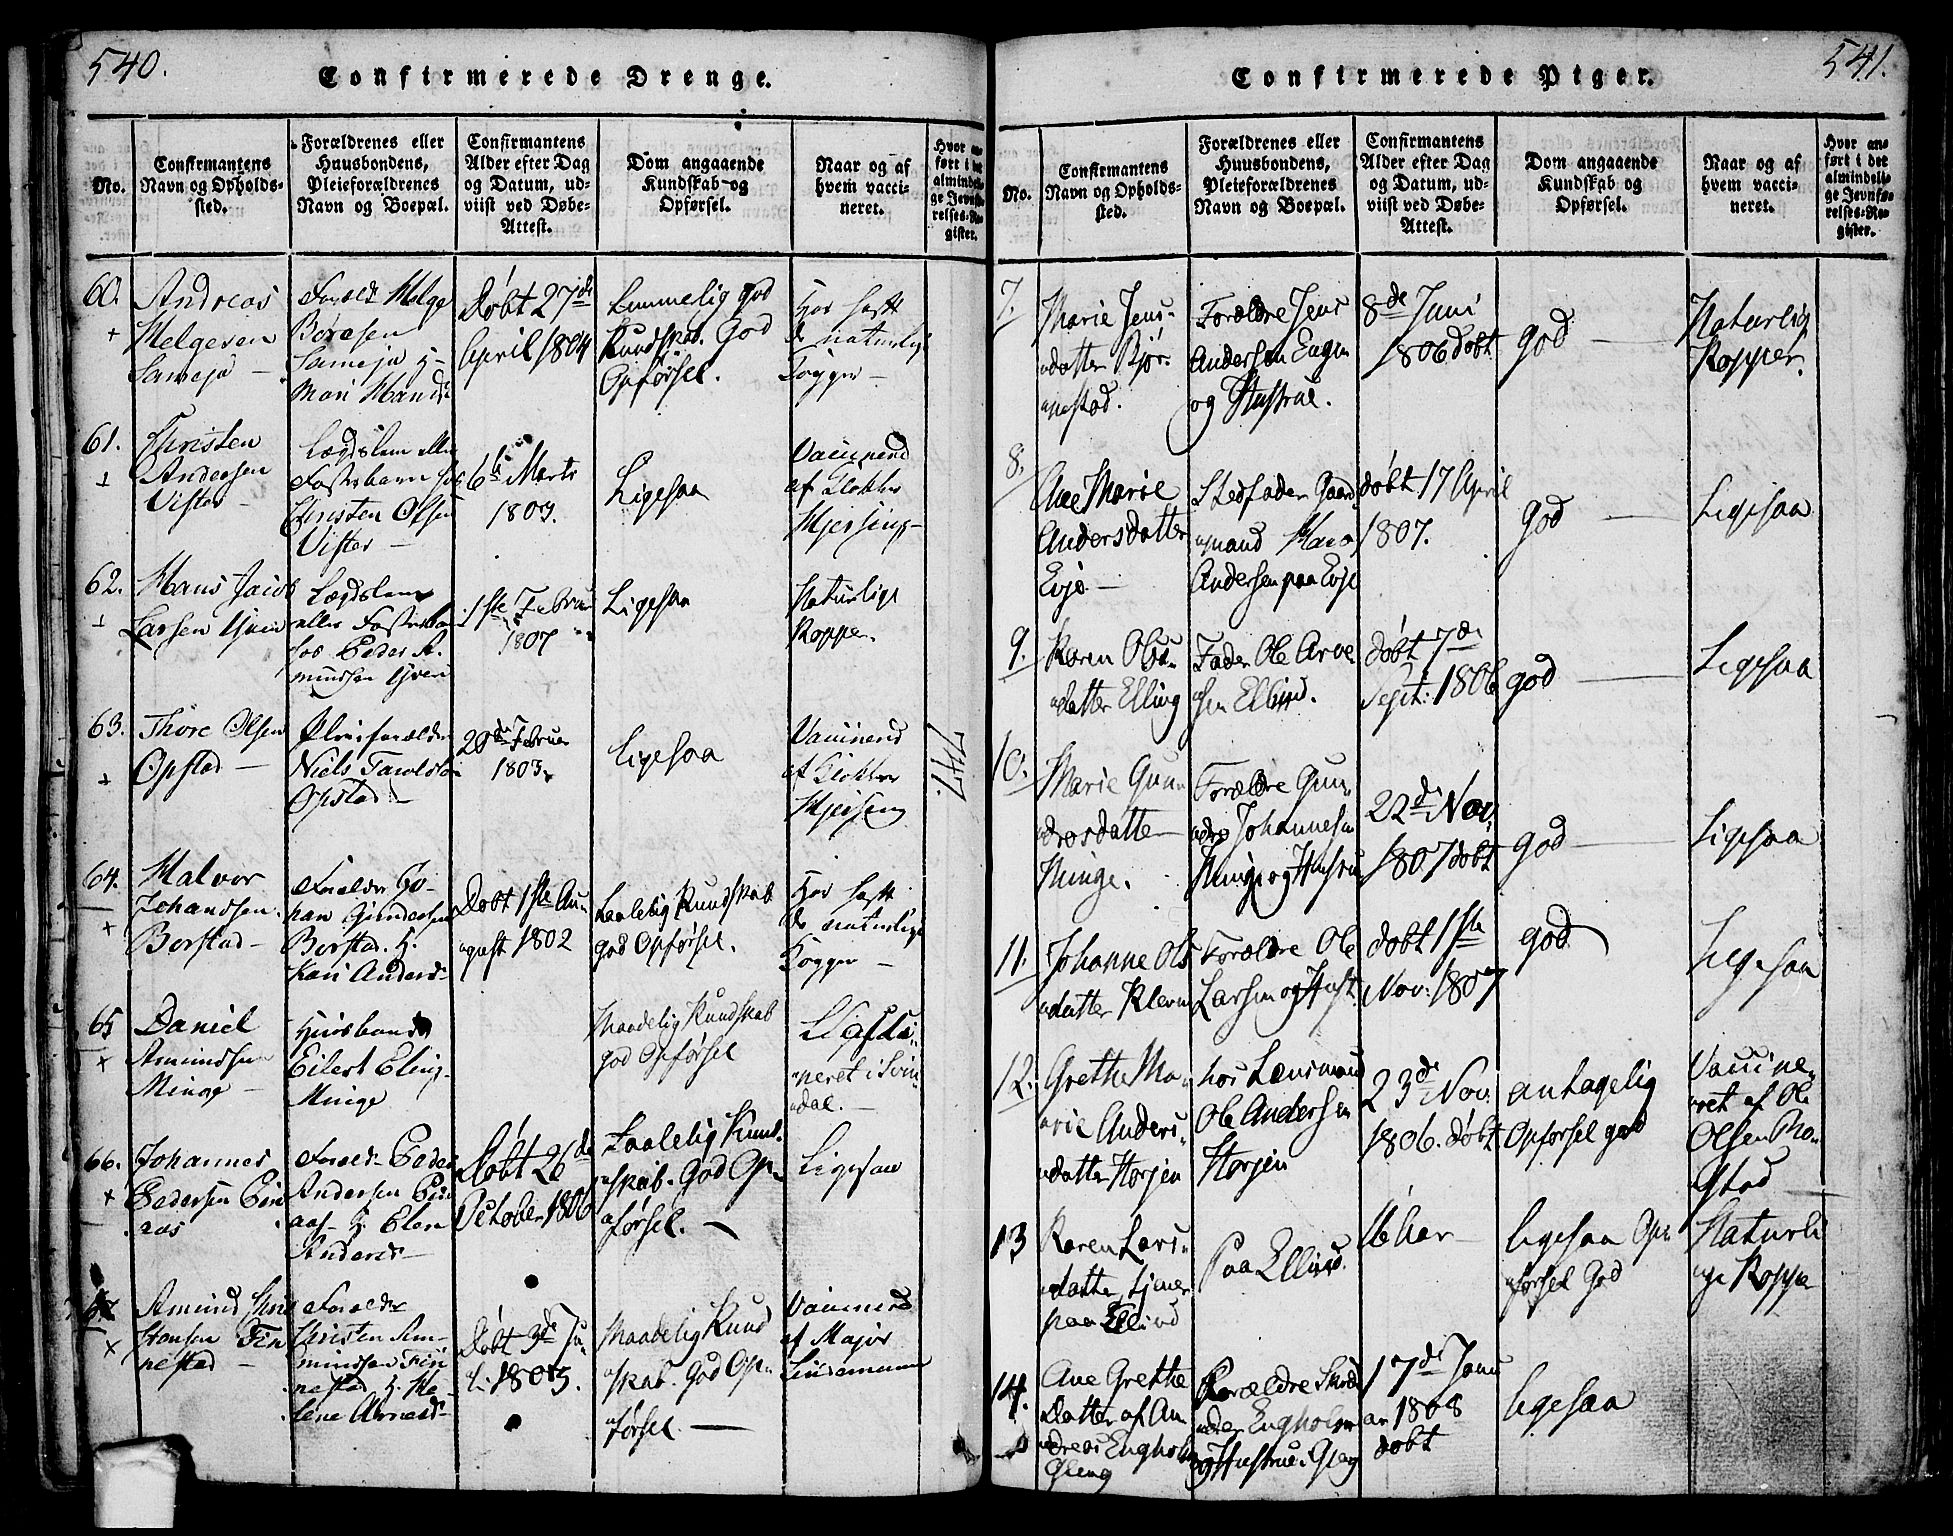 540.
Confirmerede Drenge.
No.
Confirmantens
Navn og Opholds-
sted.
Forældrenes eller
Huusbondens,
Pleieforældrenes
Navn og Boepæl.
Confirmantens
Alder efter Dag
og Datum, ud-
viist ved Døbe-
Attest.
Dom angaaende
Kundskab og
Opførsel.
Naar og af
hvem vacci-
neret.
Hvor an-
ført i det
almindeli-
ge Jevnfø-
relses-Re-
gister.
60.
Andreas
Helgesen
Forældr Helge
Boresen
Mari Hansd
Døbt 27de
April 1804
Temmelig god
Kundskab. God
Opførsel.
Har haft
de naturlige
Kopper
61.
Christen
Andersen
Vister
Lægdslem eller
Fosterbarn hos
Christen Olsen
Vister
6te Marts
1803.
Ligesaa
Vaccinerd
af Klokker
62.
Hans Jacob
Larsen
Lægdslem
eller Fosterbarn
hos Peder A-
mundsen
1ste Februar
1807
Ligesaa
Naturlige
Kopper.
63.
Thore Olsen
Opstad
Pleieforældre
Niels
Opstad
Februar
1803.
Ligesaa
Vaccinerd
af Klokker
747.
64.
Halvor
Johansen
Borstad
Forældr Jo-
han Gundersen
Borstad. H.
Kari Andersd
Døbt 1ste Au-
gust 1802
Taalelig Kundskab
god Opførsel.
Har haft
de naturlige
Kopper
65
Daniel
Amundsen
Minge
Huusbond
Eilert Eling
Minge
Maadelig Kundskab
god Opførsel
neret i Svin-
dal.
66.
Johannes
Pedersen
Forældr Peder
Andersen
H. Elen
Andersd
Døbt 26de
October 1806
Taalelig Kund-
skab. God Op-
førsel.
Ligesaa
67
Amund Chri
stensen Fin
nestad
Forældr
Christen Am-
mundsen Fin
nestad H. He-
lene Arnesd
Døbt 3de Ju-
li 1805.
Maadelig Kund
skab. God Op-
førsel.
Vaccinerd
af Major
Lindemann
541.
Confirmerede Piger.
No.
Confirmantens
Navn og Opholds-
sted.
Forældrenes eller
Huusbondens,
Pleieforældrenes
Navn og Boepæl.
Confirmantens
Alder efter Dag
og Datum, ud-
viist ved Døbe-
Attest.
Dom angaaende
Kundskab og
Opførsel.
Naar og af
hvem vacci-
neret.
Hvor an-
ført i det
almindeli-
ge Jevnfø-
relses-Re-
gister.
7.
Marie Jens-
datter Bjør-
nestad.
Forældre Jens
Andersen Engen
og Hustrue.
8de Juni
1806 døbt
god
Naturlig
Kopper.
8.
Ane Marie
Andersdatter
Evje
Stedfader Gaard
mand
Andersen paa Evje
døbt 17 April
1807.
god
Ligesaa
9.
Karen Ols-
datter Elling
Fader Ole Arve
sen
døbt 7de
Sept: 1806
god
Ligesaa
10.
Marie Gun-
dersdatter
Minge.
Forældre Gun-
der Johannesen
Minge og Hustru
22de Nov.
1807 døbt
god
Ligesaa
11.
Johanne Ols
datter Kleven
Forældre Ole
Larsen og Hust
døbt 1ste
Nov: 1807
god
Ligesaa
12.
Grethe Ma-
rie Anders-
datter Horjen
hos Lensmand
Ole Andersen
Horjen
23de Nov.
1806. døbt
antagelig
Opførsel god
Vaccine-
ret af Ole
Olsen Bo-
stad
13
Karen Lars-
datter tjener
paa
Paa
16 Aar
ligesaa Op-
førsel God
Naturli
ge Koppe
14.
Ane Grethe
Datter af An
dreas Engholm
Gleng
Forældre
Engholm
og Hustrue. Gleng
17de Janu
ar 1808
døbt
ligesaa